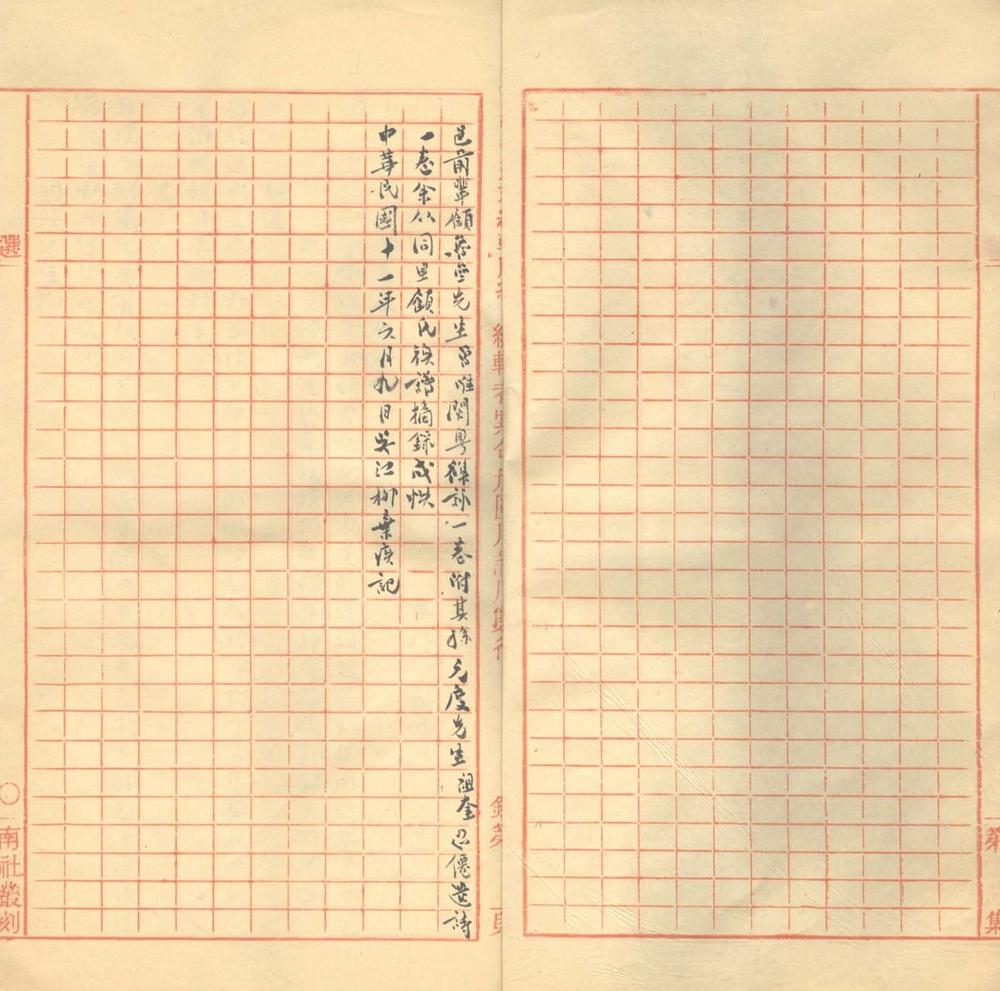 邑前輩顧先生閩粵雜詠一卷附其孫元度先生祖奎僊遺詩
一卷余從同里顧氏族譜摘錄成帙
中華民國十一年六月九日吳江柳棄疾記
選
○南社叢刻
第 集